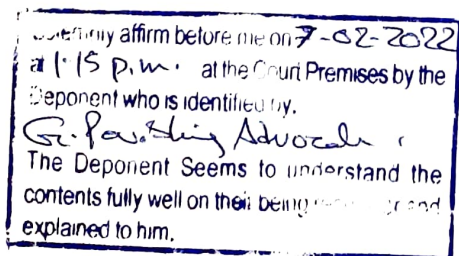 affirm before me on 7-02-2022
at 1:15 p.m. at the Court Premises by the
Deponent who is identified by.
Advocate
The Deponent Seems to understand the
contents fully well on their being and
explained to him.